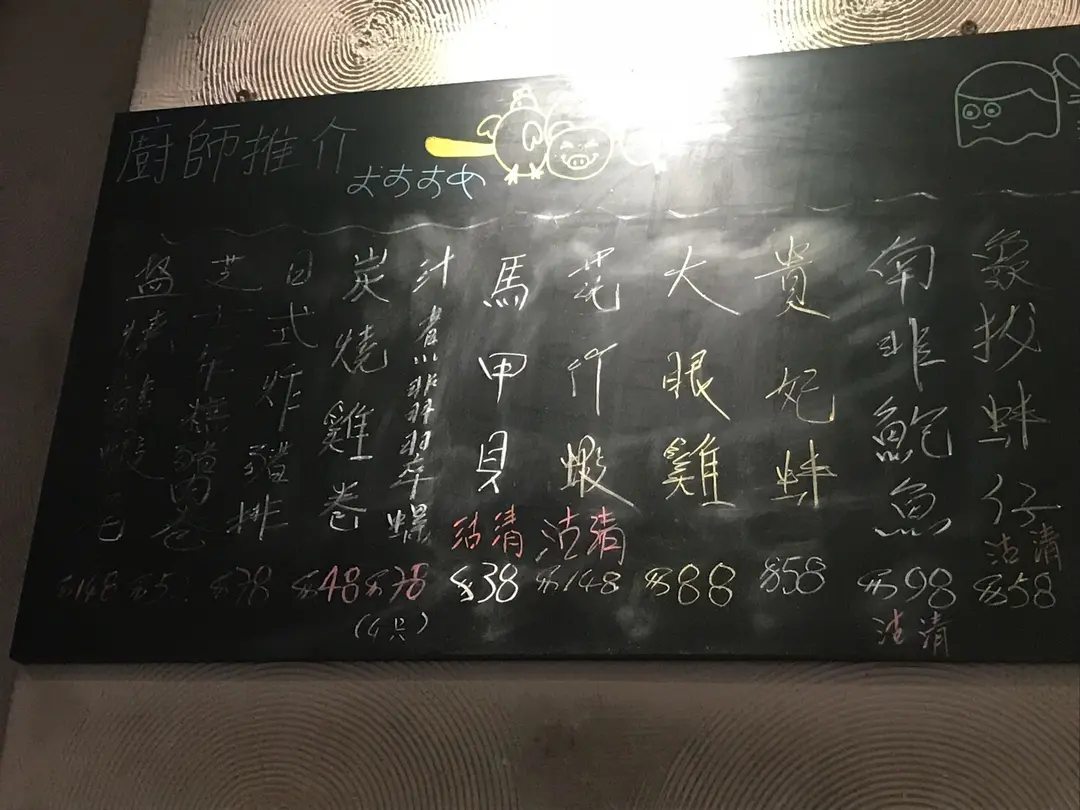 廚師推介
おすすめ
象拔蚌仔 沽清 $58
南非鮑魚 $98 沽清
貴妃蚌 $58
大眼雞 $88
花竹蝦 沽清 $148
馬甲貝 沽清 $38
汁煮翡翠螺 $78
炭燒雞卷 $48 (4只)
日式炸豬排 $78
芝士 燒豬肉卷
燒 $148